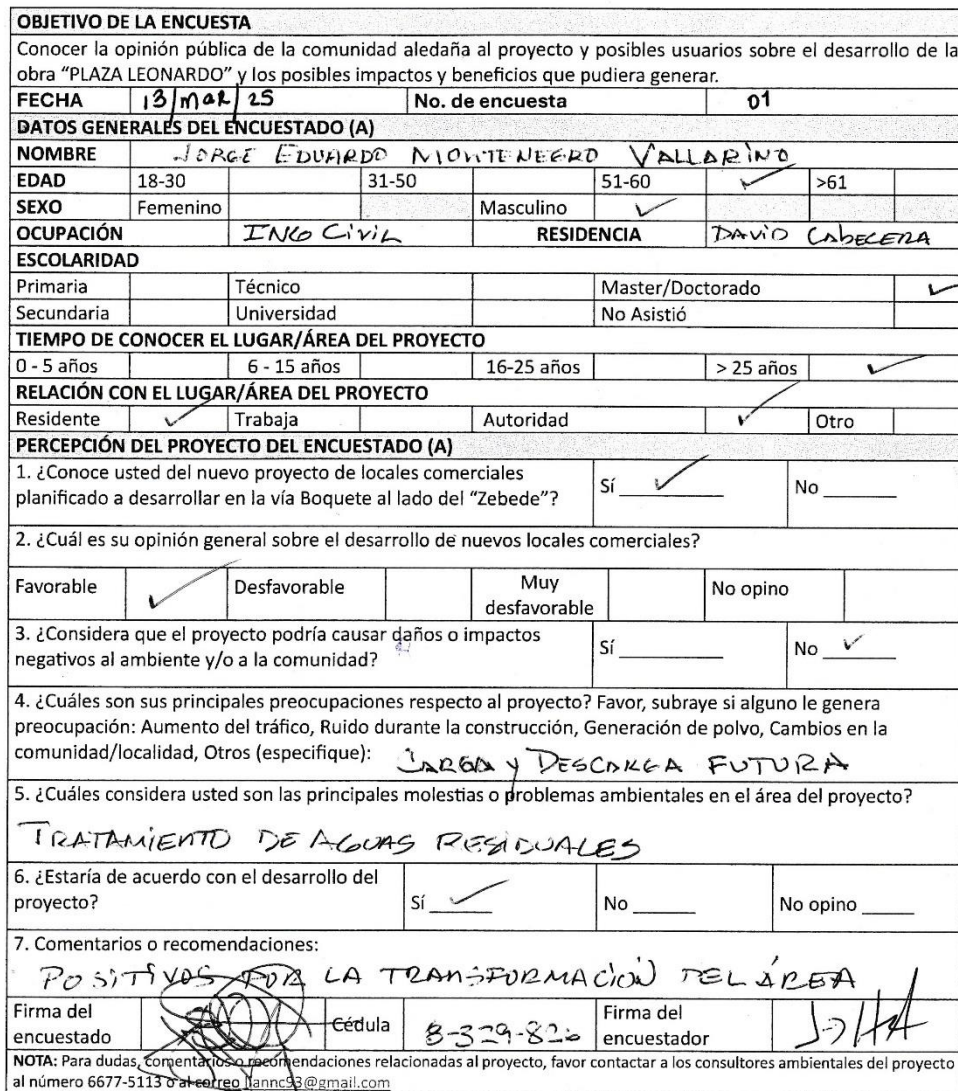 OBJETIVO DE LA ENCUESTA
Conocer la opinión pública de la comunidad aledaña al proyecto y posibles usuarios sobre el desarrollo de la
obra “PLAZA LEONARDO” y los posibles impactos y beneficios que pudiera generar.
FECHA 13/mar/25 No. de encuesta 01
DATOS GENERALES DEL ENCUESTADO (A)
NOMBRE JORGE EDUARDO MONTENEGRO VALLARINO
EDAD 18-30 31-50 51-60 ✓ >61
SEXO Femenino Masculino ✓
OCUPACIÓN INGO CIVIL RESIDENCIA DAVID CABECERA
ESCOLARIDAD
Primaria Técnico Master/Doctorado ✓
Secundaria Universidad No Asistió
TIEMPO DE CONOCER EL LUGAR/ÁREA DEL PROYECTO
0 - 5 años 6 - 15 años 16-25 años > 25 años ✓
RELACIÓN CON EL LUGAR/ÁREA DEL PROYECTO
Residente ✓ Trabaja Autoridad ✓ Otro
PERCEPCIÓN DEL PROYECTO DEL ENCUESTADO (A)
1. ¿Conoce usted del nuevo proyecto de locales comerciales
planificado a desarrollar en la vía Boquete al lado del “Zebede”? Sí ✓ No
2. ¿Cuál es su opinión general sobre el desarrollo de nuevos locales comerciales?
Favorable ✓ Desfavorable Muy desfavorable No opino
3. ¿Considera que el proyecto podría causar daños o impactos
negativos al ambiente y/o a la comunidad? Sí No ✓
4. ¿Cuáles son sus principales preocupaciones respecto al proyecto? Favor, subraye si alguno le genera
preocupación: Aumento del tráfico, Ruido durante la construcción, Generación de polvo, Cambios en la
comunidad/localidad, Otros (especifique): CARGA Y DESCARGA FUTURA
5. ¿Cuáles considera usted son las principales molestias o problemas ambientales en el área del proyecto?
TRATAMIENTO DE AGUAS RESIDUALES
6. ¿Estaría de acuerdo con el desarrollo del
proyecto? Sí ✓ No No opino
7. Comentarios o recomendaciones:
POSITIVOS POR LA TRANSFORMACIÓN DEL ÁREA
Firma del encuestado Cédula Firma del encuestador
NOTA: Para dudas, comentarios o recomendaciones relacionadas al proyecto, favor contactar a los consultores ambientales del proyecto
al número 6677-5113 o al correo